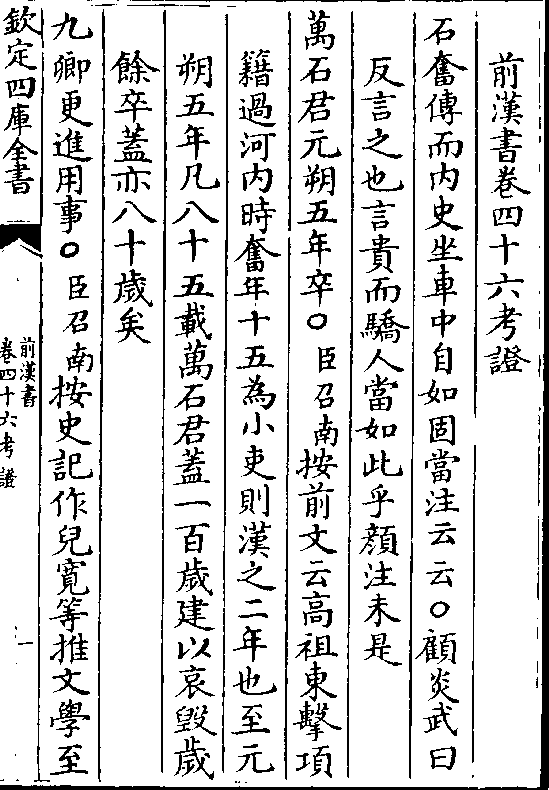 前漢書卷四十六考證
石奮傳而内史坐車中自如固當注云云○顧炎武曰
反言之也言貴而驕人當如此乎顔注未是
萬石君元朔五年卒○臣召南按前文云高祖東擊項
籍過河内時奮年十五為小吏則漢之二年也至元
朔五年凡八十五載萬石君蓋一百歲建以哀毀歲
餘卒蓋亦八十歲矣
九卿更進用事○臣召南按史記作兒寬等推文學至
欽定四庫全書
前漢書
卷四十六考證
一